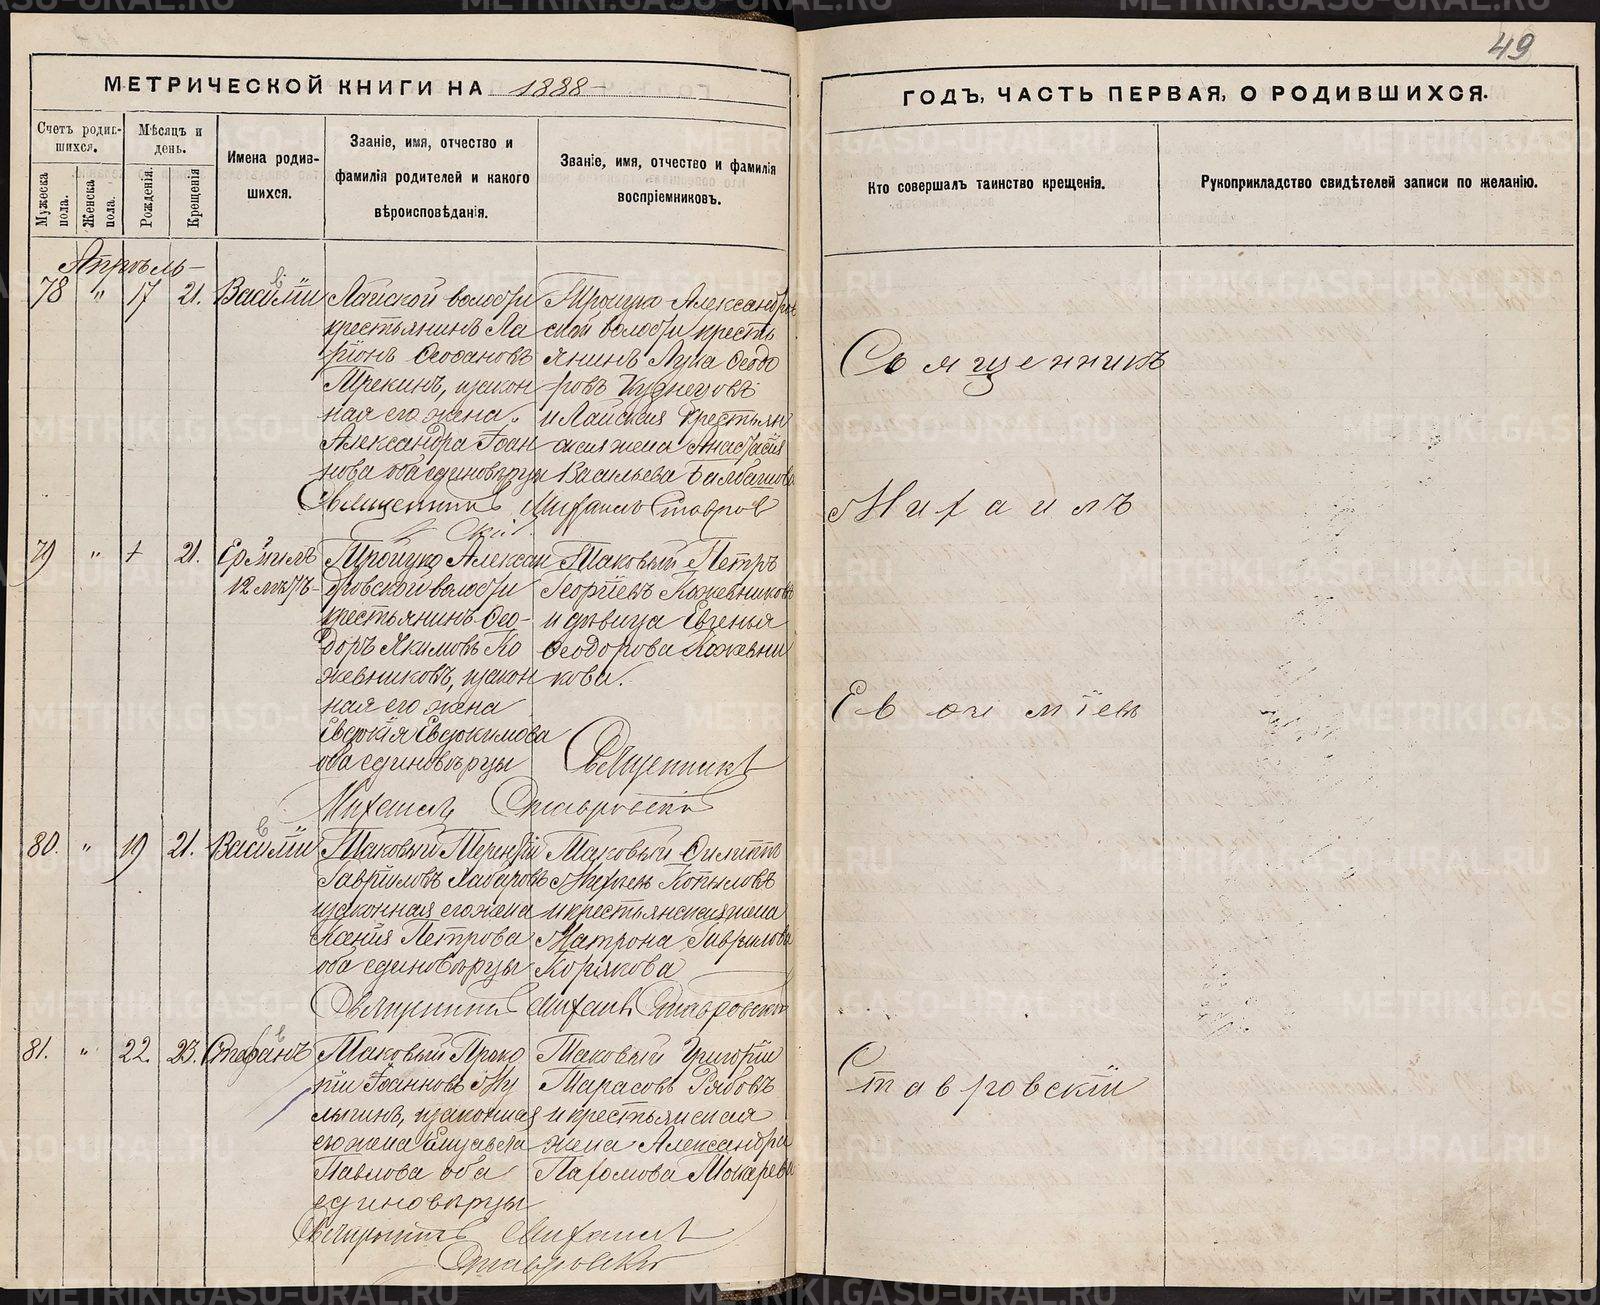 49
МЕТРИЧЕСКОЙ КНИГИ НА 1888
ГОДЪ, ЧАСТЬ ПЕРВАЯ, О РОДИВШИХСЯ.
Счетъ родив-
шихся.
Мужеска пола.
Женска пола.
Мѣсяцъ и
день.
Рожденія.
Крещенія
Имена родив-
шихся.
Званіе, имя, отчество и
фамилія родителей и какого
вѣроисповѣданія.
Званіе, имя, отчество и фамилія
воспріемниковъ.
Кто совершалъ таинство крещенія.
Рукоприкладство свидѣтелей записи по желанію.
Апрѣль
78 " 17 21. Василій
Лайской волости
крестьянинъ Ла
ріонъ Ѳеофановъ
Трекинъ, закон
ная его жена
Александра Іоан
нова оба единовѣрцы
Троицко-Александров
ской волости кресть
янинъ Лука Ѳеодо
ровъ Кузнецовъ
и Лайская крестьян
ская жена Анастасія
Васильева
Священникъ Михаилъ Ставров
скій
79 " 21. Ермилъ
Троицко Алексан
дровской волости
крестьянинъ Ѳео-
доръ Якимовъ Ко
жевниковъ, закон
ная его жена
Евдокія Евдокимова
оба единовѣрцы
Таковый Петръ
Георгіевъ Кожевниковъ
и дѣвица Евгенья
Ѳеодорова Кожевни
кова.
Священникъ
Михаилъ Ставровскій
80. " 19 21. Василій
Таковый Терентій
Гавріиловъ Хабаровъ
законная его жена
Ксенія Петрова
оба единовѣрцы
Таковый Филиппъ
Копыловъ
и крестьянская жена
Матрона Гавриилова
Корякова
Священникъ Михаилъ Ставровскій
81. " 22. 23. Стефанъ
Таковый Проко
пій Іоанновъ Му
лыгинъ, законная
его жена Елизавета
Павлова оба
единовѣрцы
Таковый Григорій
Тарасовъ Рябовъ
и крестьянская
жена Александра
Пахомова Токарева
Священникъ Михаилъ
Ставровскій
Священникъ
Михаилъ
Евѳиміевъ
Ставровскій
METRIKI.GASO-URAL.RU